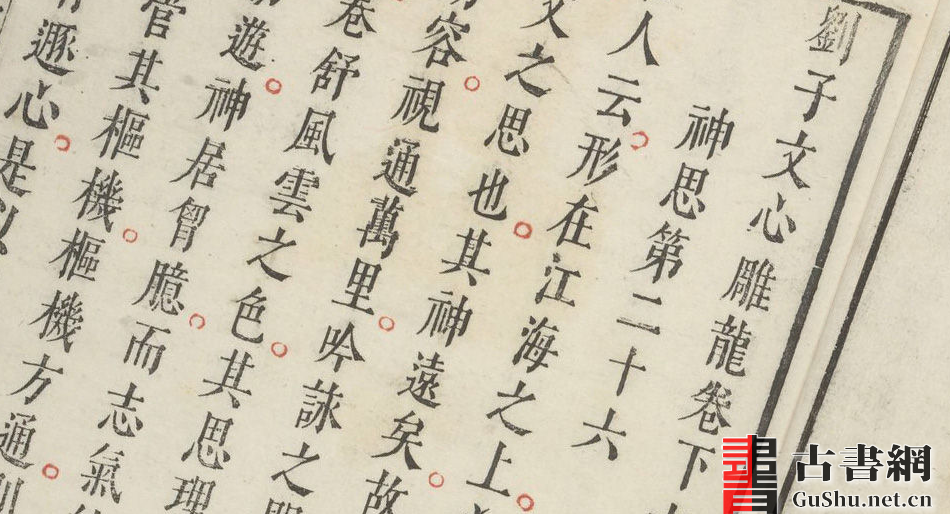 劉子文心雕龍卷下
神思第二十六
人云。形在江海之上。
文之思也。其神遠矣。故
容。視通萬里。吟詠之
卷舒風雲之色。其思理
遊。神居胷臆。而志氣
管其樞機。樞機方通。
遯心。是以
古書網
GuShu.net.cn